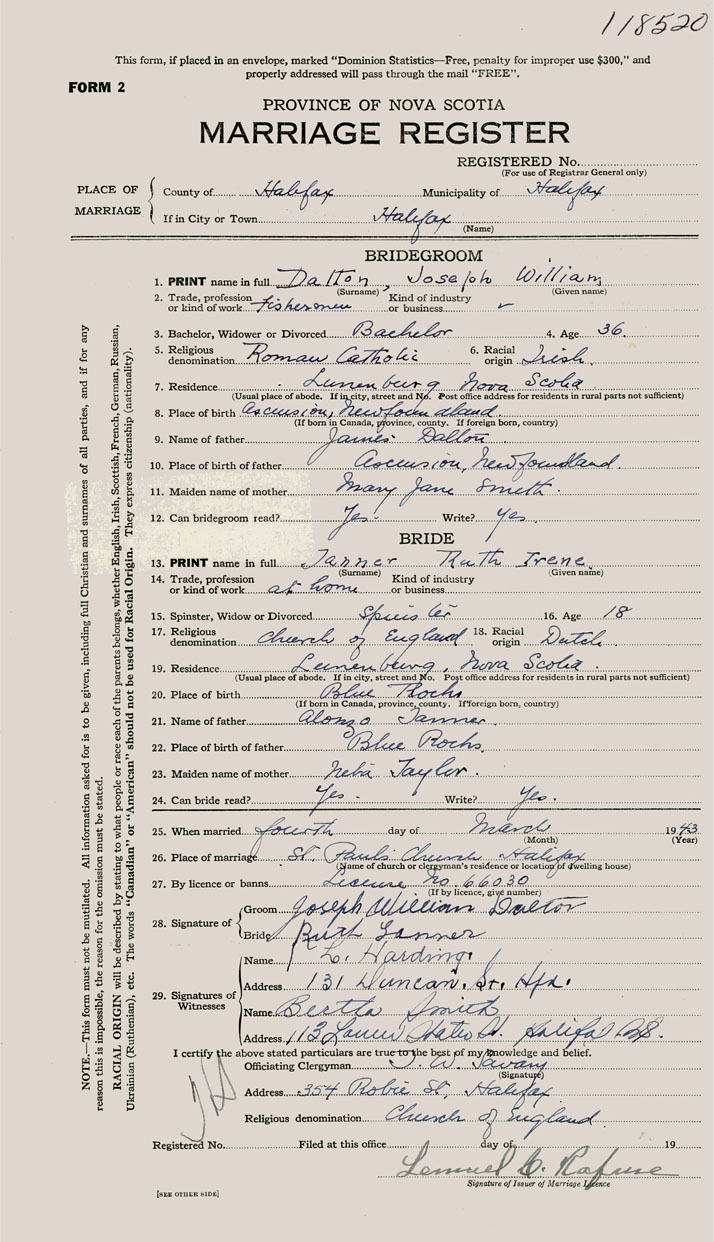 118520
This form, if placed in an envelope, marked "Dominion Statistics—Free, penalty for improper use $300," and
properly addressed will pass through the mail "FREE".
FORM 2
PROVINCE OF NOVA SCOTIA
MARRIAGE REGISTER
REGISTERED No.
(For use of Registrar General only)
PLACE OF MARRIAGE
County of Halifax Municipality of Halifax
If in City or Town Halifax
(Name)
BRIDEGROOM
1. PRINT name in full Dalton, Joseph William
(Surname) (Given name)
2. Trade, profession or kind of work Fishermen Kind of industry or business
3. Bachelor, Widower or Divorced Bachelor 4. Age 36
5. Religious denomination Roman Catholic 6. Racial origin Irish
7. Residence Lunenburg Nova Scotia
(Usual place of abode. If in city, street and No. Post office address for residents in rural parts not sufficient)
8. Place of birth Ascension, Newfoundland
(If born in Canada, province, county. If foreign born, country)
9. Name of father James Dalton
10. Place of birth of father Ascension, Newfoundland.
11. Maiden name of mother Mary Jane Smith
12. Can bridegroom read? Yes. Write? Yes.
BRIDE
13. PRINT name in full Tanner Ruth Irene
(Surname) (Given name)
14. Trade, profession or kind of work at home Kind of industry or business
15. Spinster, Widow or Divorced Spinster 16. Age 18
17. Religious denomination Church of England 18. Racial origin Dutch
19. Residence Lunenburg, Nova Scotia.
(Usual place of abode. If in city, street and No. Post office address for residents in rural parts not sufficient)
20. Place of birth Blue Rocks
(If born in Canada, province, county. If foreign born, country)
21. Name of father Alonzo Tanner.
22. Place of birth of father Blue Rocks.
23. Maiden name of mother Taylor.
24. Can bride read? Yes. Write? Yes.
25. When married fourth day of March 1943
(Month) (Year)
26. Place of marriage St. Pauls Church Halifax
(Name of church or clergyman's residence or location of dwelling house)
27. By licence or banns License No. 66030
(If by licence, give number)
28. Signature of
Groom Joseph William Dalton
Bride Ruth Tanner
29. Signatures of Witnesses
Name L. Harding
Address 131 Duncan. St. Hfx.
Name Bertha Smith
Address 113 Water St. Halifax N.S.
I certify the above stated particulars are true to the best of my knowledge and belief.
Officiating Clergyman
(Signature)
Address 354 Robie St, Halifax
Religious denomination Church of England
Registered No. Filed at this office day of 19
Lemuel C. Rafuse
Signature of Issuer of Marriage Licence
[SEE OTHER SIDE]
NOTE.—This form must not be mutilated. All information asked for is to be given, including full Christian and surnames of all parties, and if for any
reason this is impossible, the reason for the omission must be stated.
RACIAL ORIGIN will be described by stating to what people or race each of the parents belongs, whether English, Irish, Scottish, French, German, Russian,
Ukrainian (Ruthenian), etc. The words "Canadian" or "American" should not be used for Racial Origin. They express citizenship (nationality).